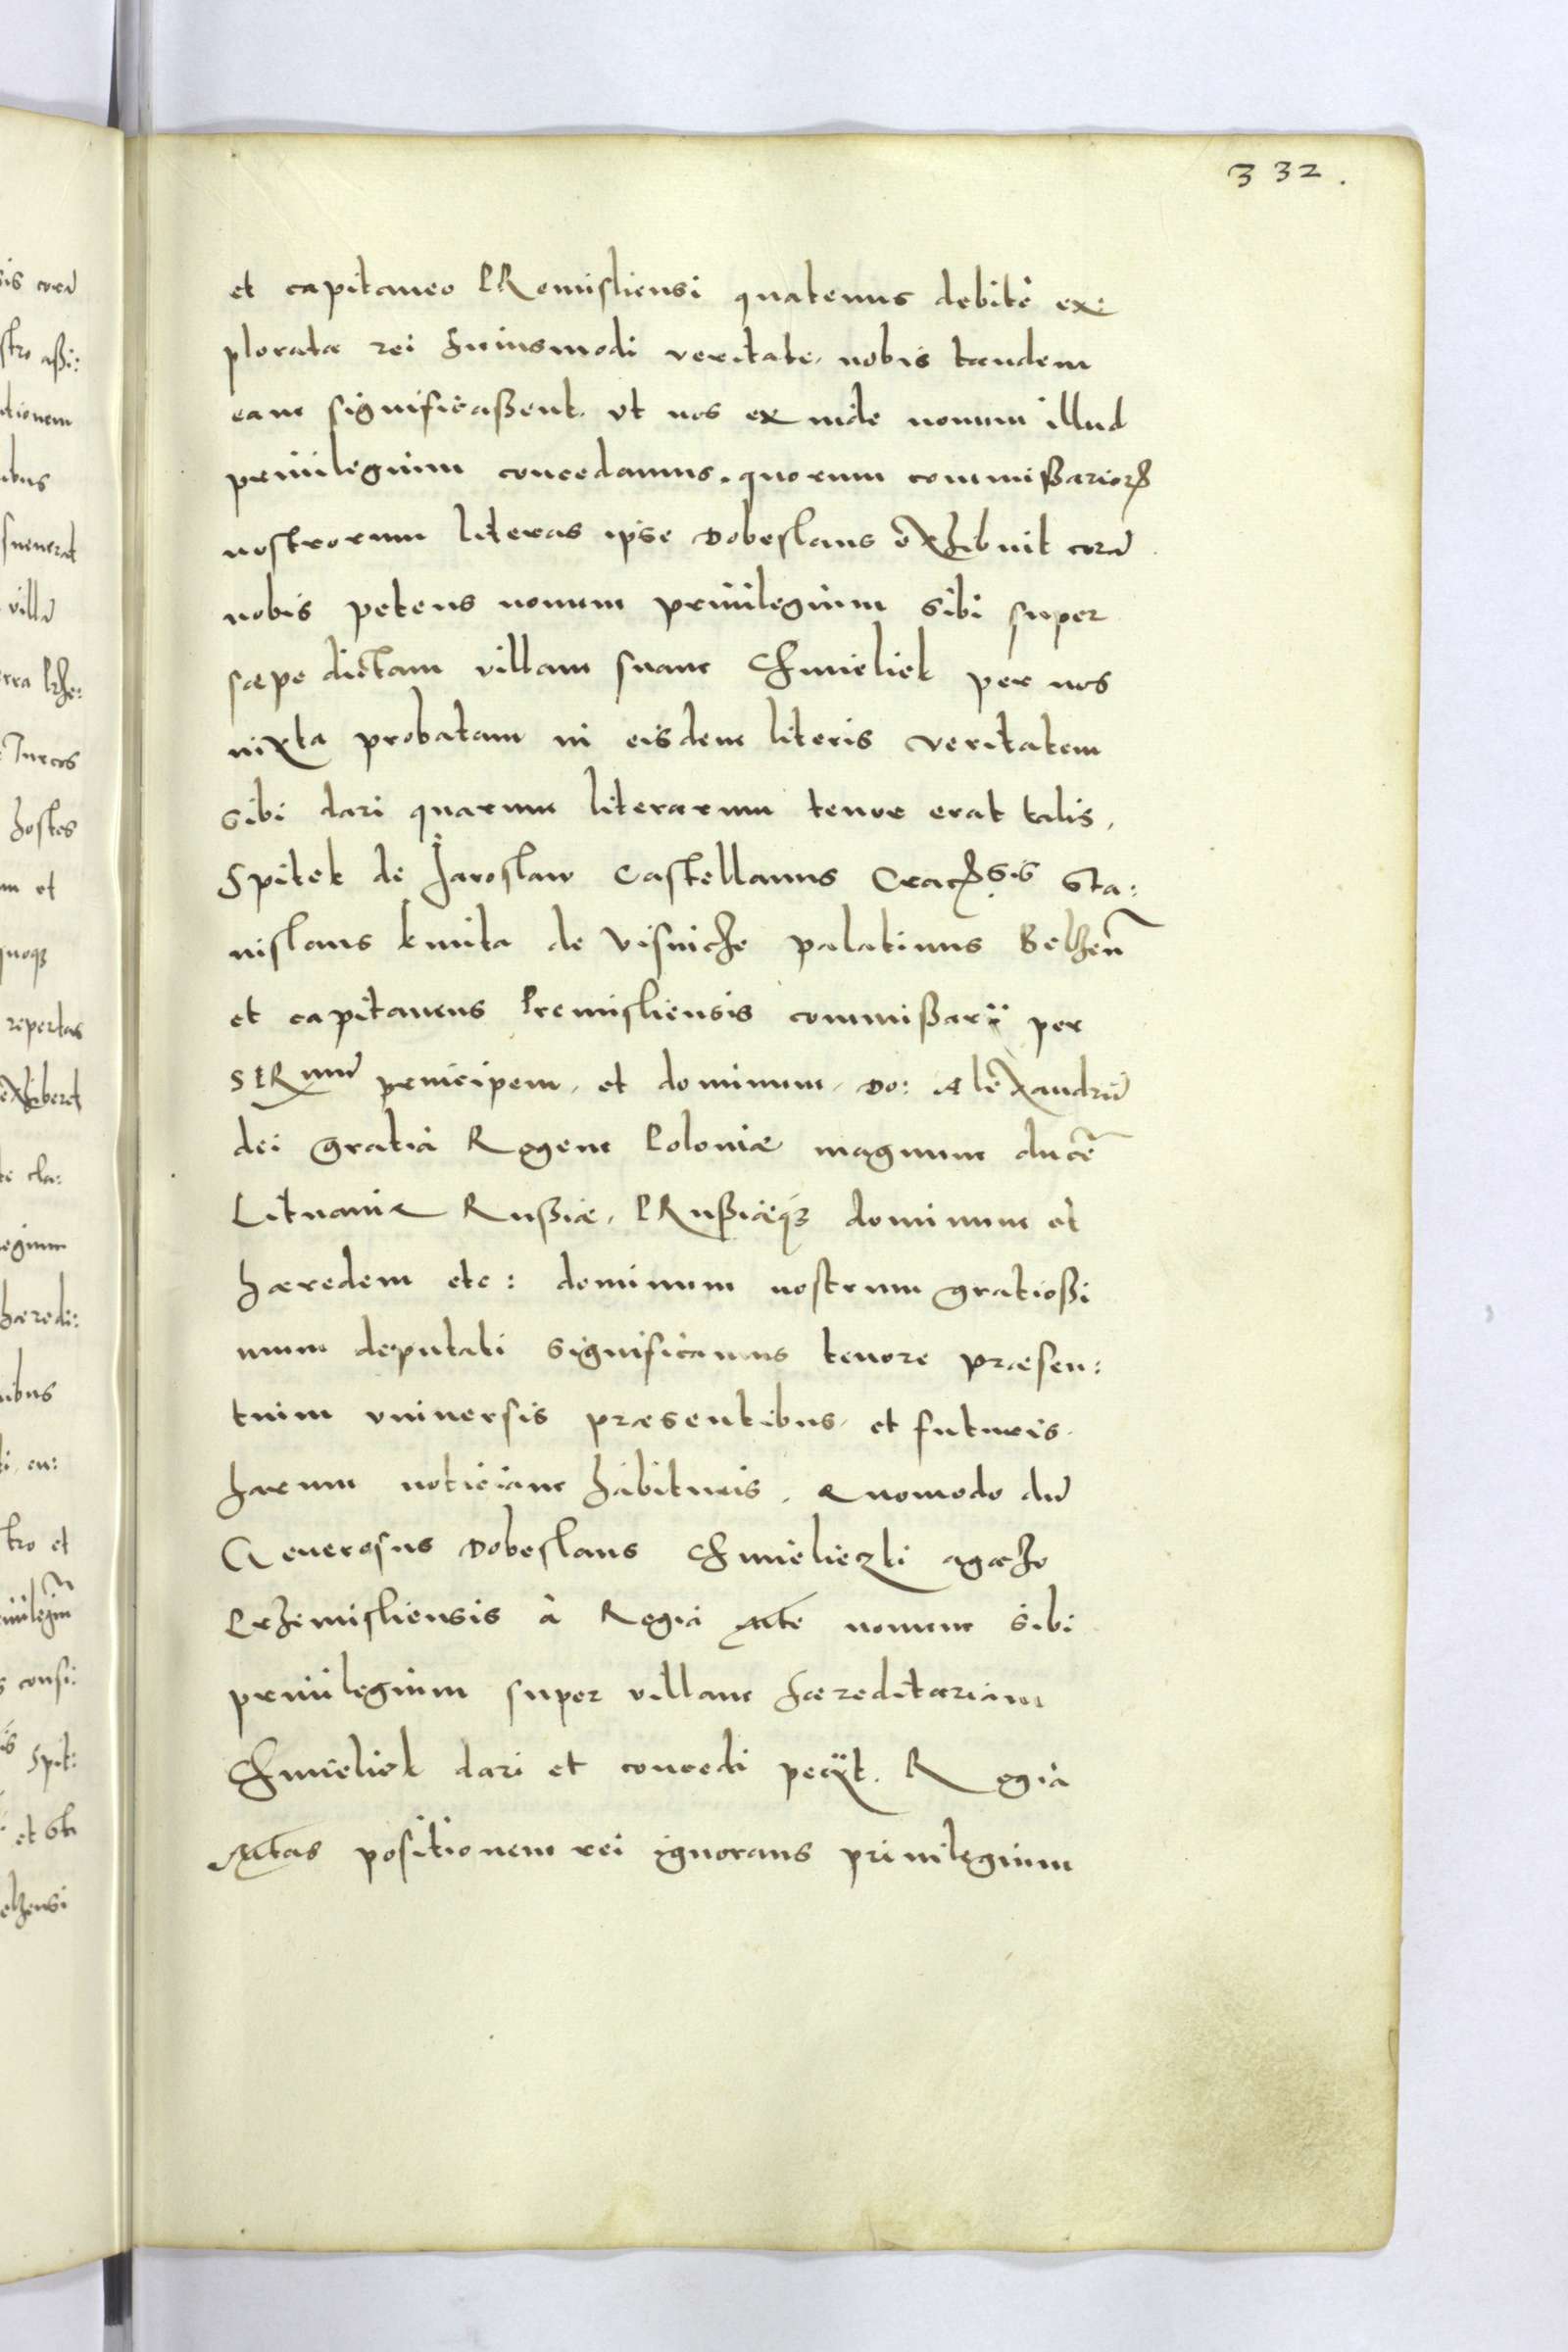 332.
et capitaneo PRemisliensi quatenus debite ex:
plorata rei huiusmodi veritate, nobis tandem
eam significaßent. vt nos ex inde nouum illud
priuilegium concedamus. quorum commißarioꝝ
nostrorum literas ipse Dobeslaus exhibuit corã
nobis petens nouum priuilegium sibi super
sæpe dictam villam suam Chmieliek per nos
iuxta probatam in eisdem literis veritatem
sibi dari quarum literarum tenor erat talis,
Spitek de Jaroslaw Castellanus Cracꝝsis Sta:
nislaus kmita de Visnicze palatinus Belzeñ
et capitaneus Premisliensis commißarÿ per
SERmũ principem, et dominum, Do: Alexandrũ
dei gratia Regem Poloniæ magnum ducẽ
Lituaniæ Rußiæ, PRußiæqꝫ dominum et
hæredem etc: dominum nostrum gratioßi
mum deputati significamus tenore præsen:
tium vniuersis præsentibus, et futuris,
harum noticiam habituris, quomodo dũ
Generosus Dobeslaus Chmielieczki agazo
Przemisliensis à Regia Mte nouum sibi
priuilegium super villam hæreditariam
Chmieliek dari et concedi pecÿt. Regia
Mtas positionem rei ignorans priuilegium